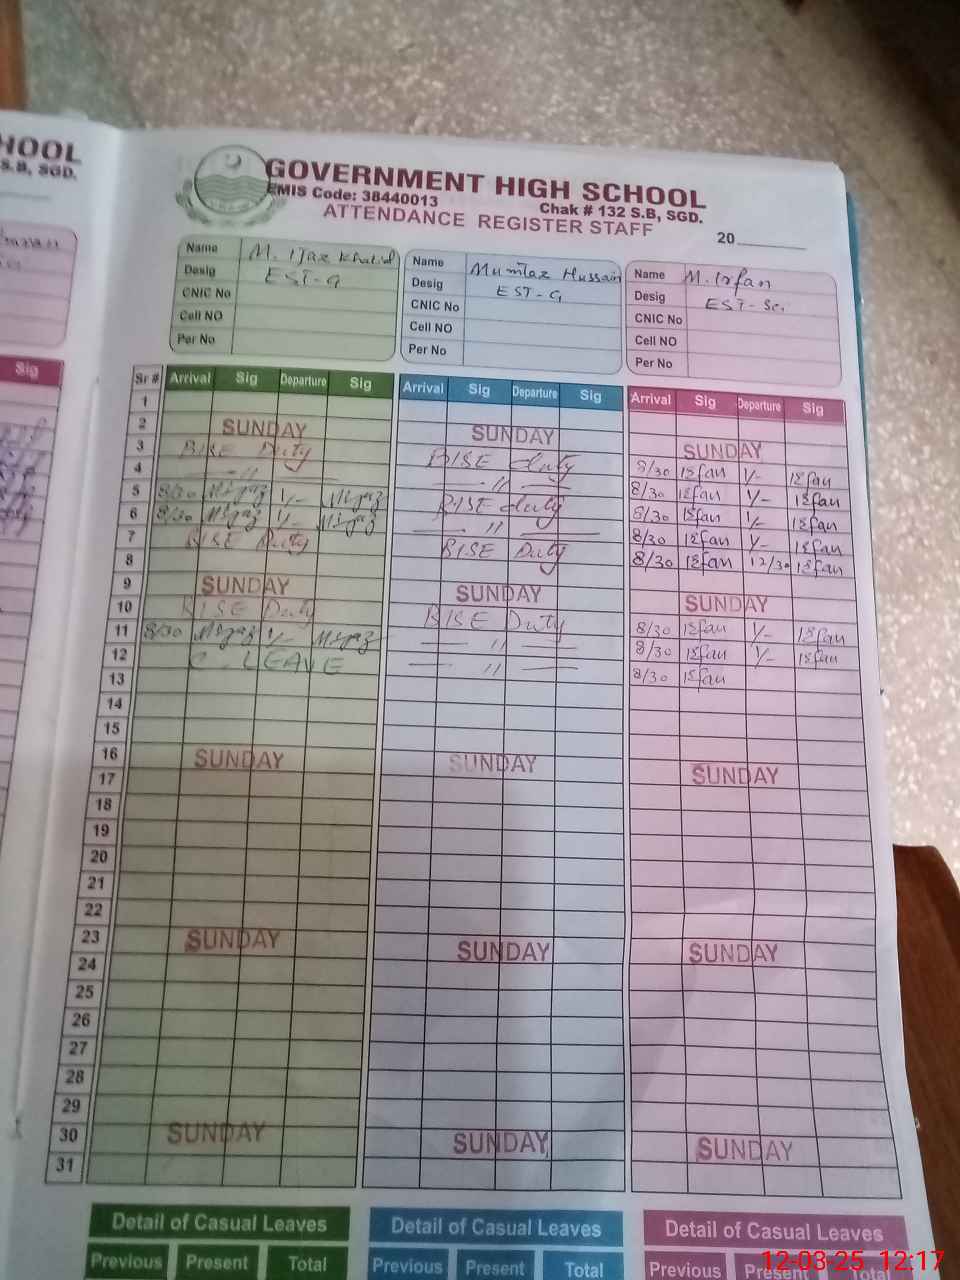 HOOL
S.B, SGD.
Sig
GOVERNMENT HIGH SCHOOL
EMIS Code: 38440013
Chak # 132 S.B, SGD.
ATTENDANCE REGISTER STAFF
20
Name M. Ijaz Khalid
Desig EST-G
CNIC No
Cell NO
Per No
Name Mumtaz Hussain
Desig EST-G
CNIC No
Cell NO
Per No
Name M. Irfan
Desig EST-Sc.
CNIC No
Cell NO
Per No
Sr # Arrival Sig Departure Sig Arrival Sig Departure Sig Arrival Sig Departure Sig
1
2 SUNDAY SUNDAY SUNDAY
3 BISE Duty BISE duty 8/30 Irfan 1/- Irfan
4 — 〃 — — 〃 — 8/30 Irfan 1/- Irfan
5 8/30 M.Ijaz 1/- M.Ijaz BISE duty 8/30 Irfan 1/- Irfan
6 8/30 M.Ijaz 1/- M.Ijaz — 〃 — 8/30 Irfan 1/- Irfan
7 BISE Duty BISE Duty 8/30 Irfan 12/30 Irfan
8
9 SUNDAY SUNDAY SUNDAY
10 BISE Duty BISE Duty 8/30 Irfan 1/- Irfan
11 8/30 M.Ijaz 1/- M.Ijaz — 〃 — 8/30 Irfan 1/- Irfan
12 C. LEAVE — 〃 — 8/30 Irfan
13
14
15
16 SUNDAY SUNDAY SUNDAY
17
18
19
20
21
22
23 SUNDAY SUNDAY SUNDAY
24
25
26
27
28
29
30 SUNDAY SUNDAY SUNDAY
31
Detail of Casual Leaves Detail of Casual Leaves Detail of Casual Leaves
Previous Present Total Previous Present Total Previous Present Total
12-03-25 12:17